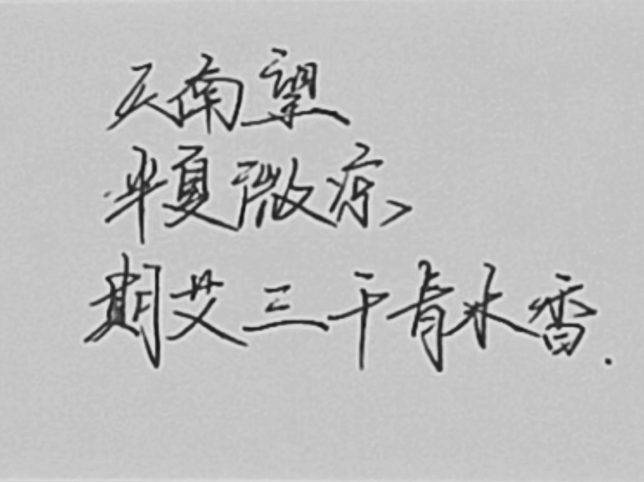 天南望
半夏微凉、
期艾三千青木香.